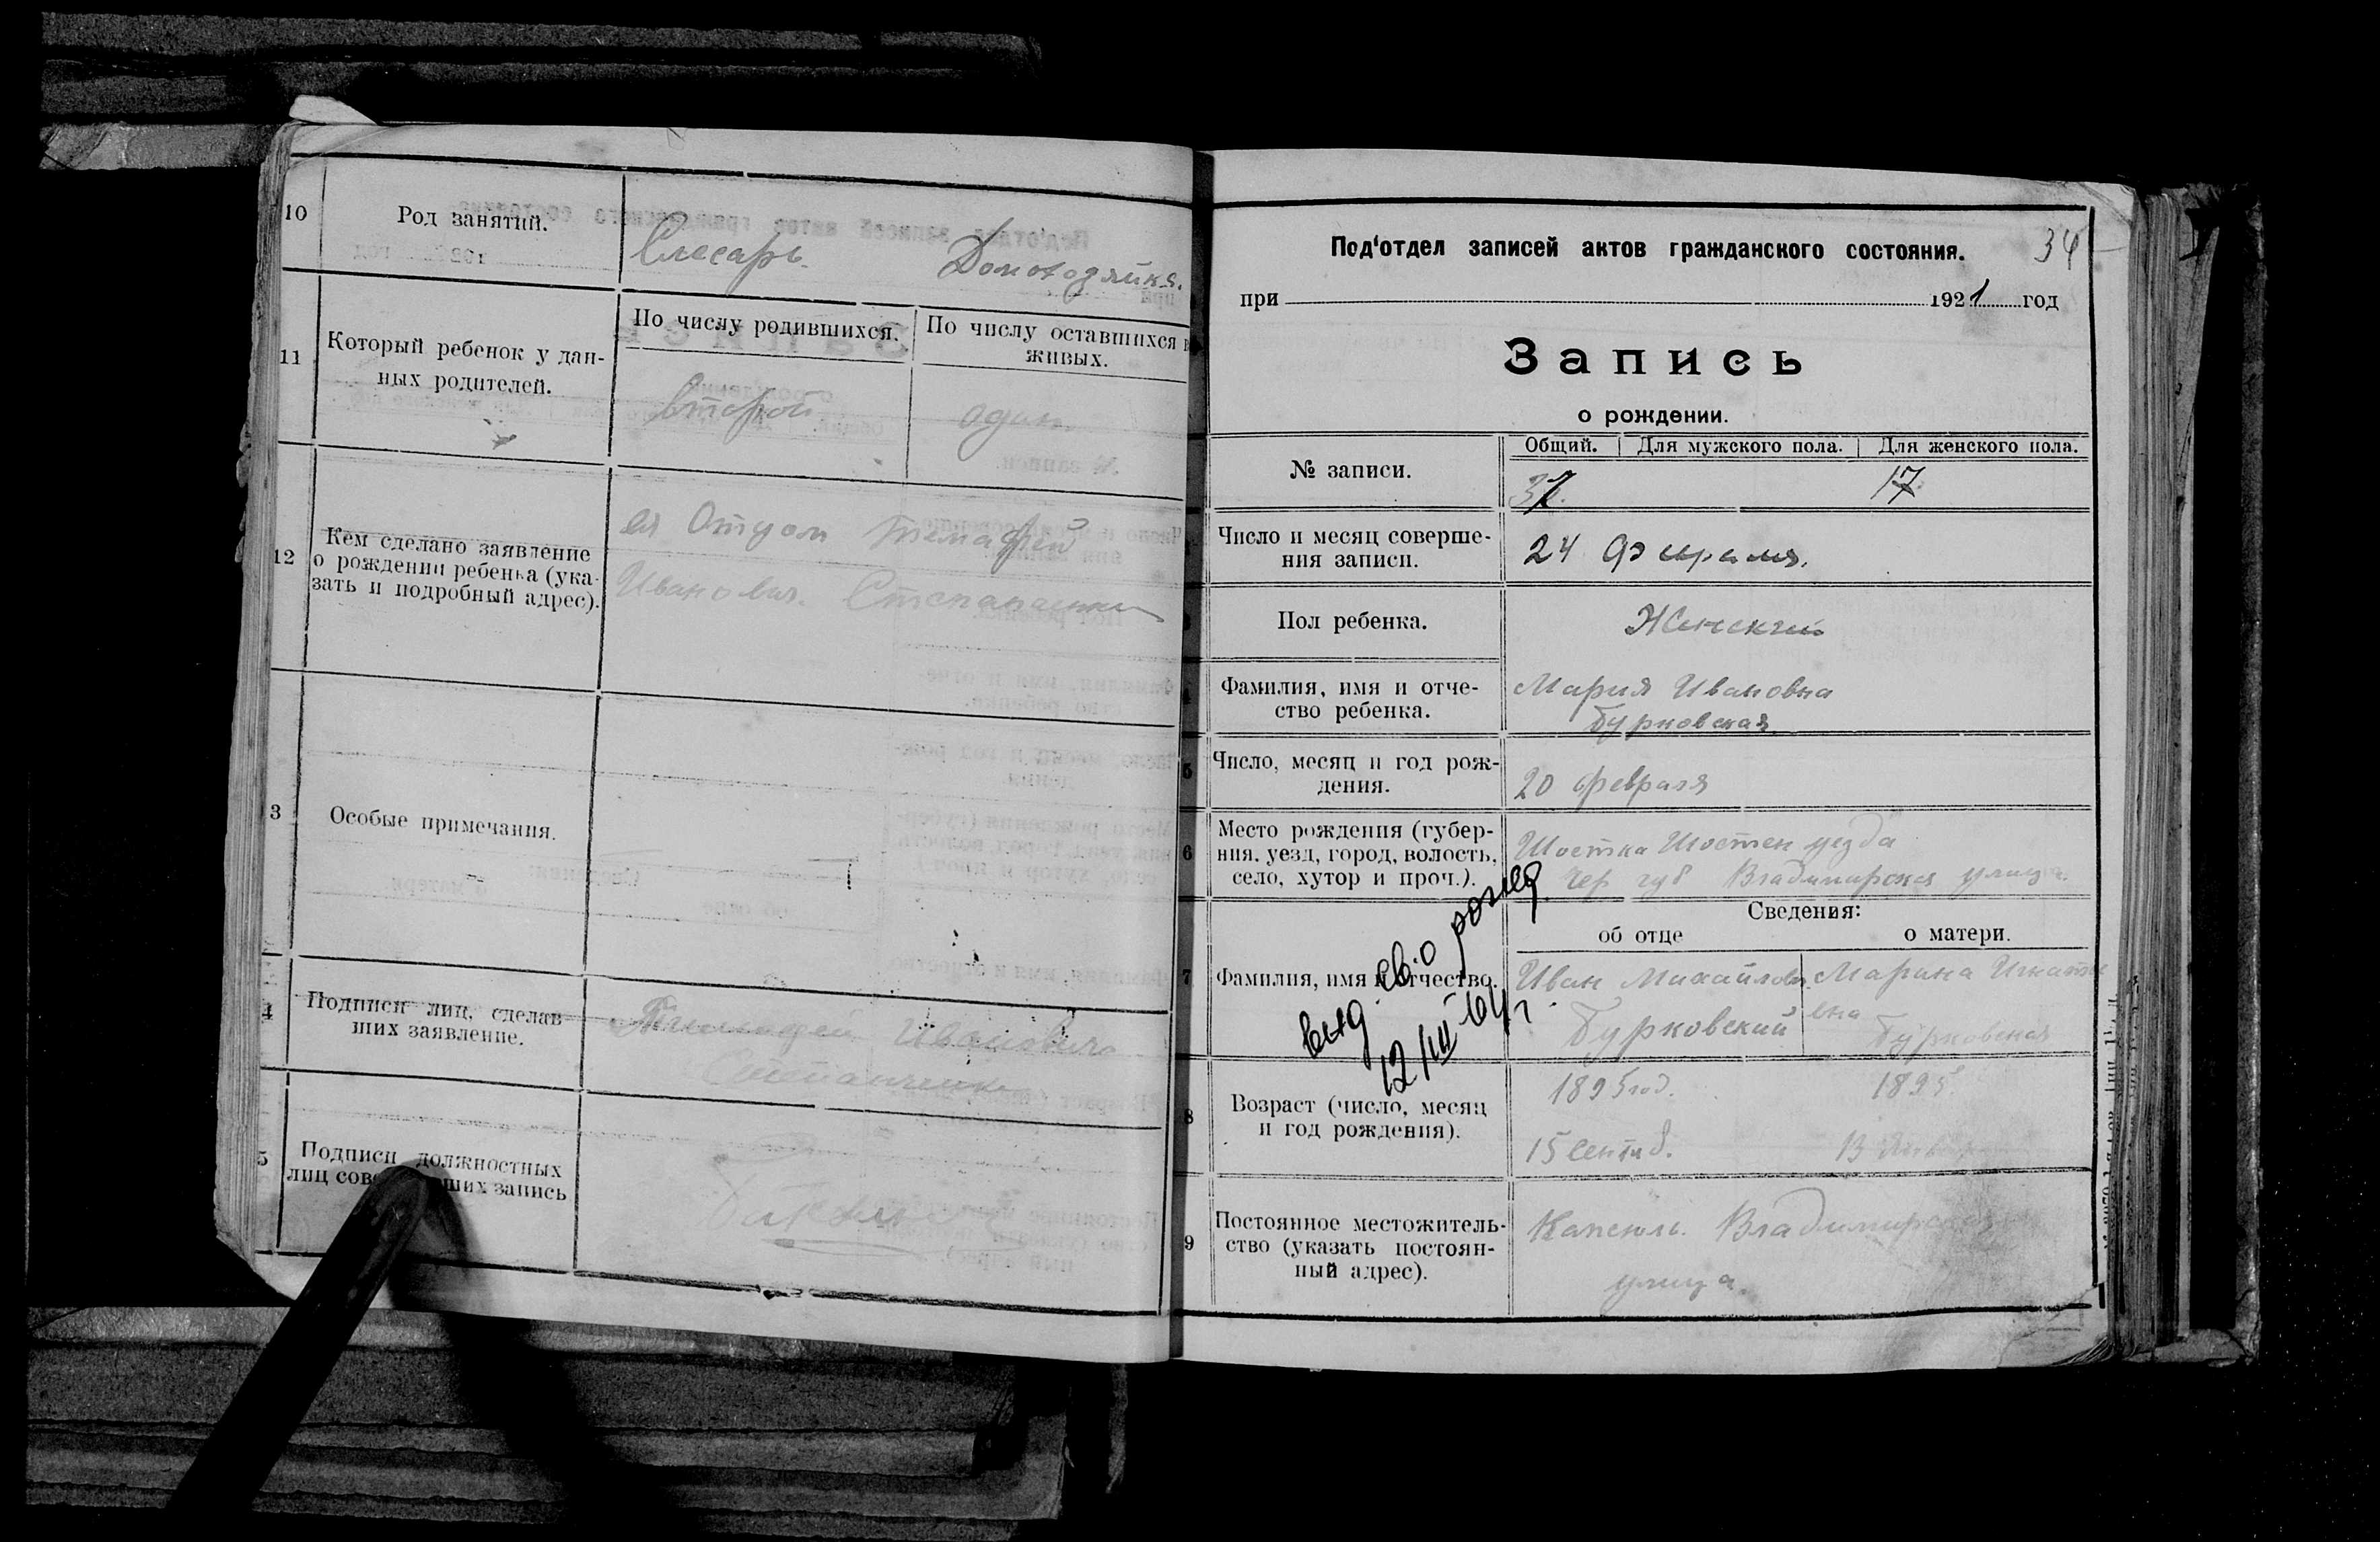 10
Род занятий.
Слесарь.
Домохозяйка.
11
Который ребенок у дан-
ных родителей.
По числу родившихся.
По числу оставшихся в
живых.
второй
один.
12
Кем сделано заявление
о рождении ребенка (ука-
зать и подробный адрес).
Отцом
Иванович.
3
Особые примечания.
4
Подписи лиц, сделав
ших заявление.
Иванович
5
Подписи должностных
ших запись
34
Под'отдел записей актов гражданского состояния.
при 1921 год
Запись
о рождении.
№ записи.
Общий. Для мужского пола. Для женского пола.
37. 17
Число и месяц соверше-
ния записи.
24 февраля.
Пол ребенка.
Женский
Фамилия, имя и отче-
ство ребенка.
Мария Ивановна
Бурковская
5
Число, месяц и год рож-
дения.
20 февраля
6
Место рождения (губер-
ния, уезд, город, волость,
село, хутор и проч.).
Шостка Шостен уезда
Чер губ Владимирская улица.
Сведения:
об отце
о матери.
7
Фамилия, имя и отчество.
Иван Михайлов.
Бурковский
Марина Игнать
евна
Бурковская
выд. св.о рожд
12/III-64 г.
8
Возраст (число, месяц
и год рождения).
1895 год.
15 сентяб.
1895
13
9
Постоянное местожитель-
ство (указать постоян-
ный адрес).
Капсюль. Владимирская
улица.